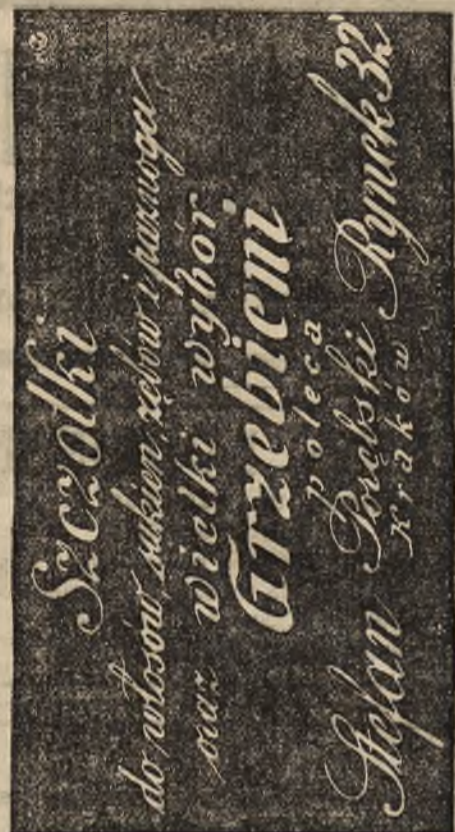 Szczotki
do włosów, sukien, zębów i paznogci
oraz wielki wybór
Grzebieni
poleca
Stefan Porębski Rynek 32
Kraków